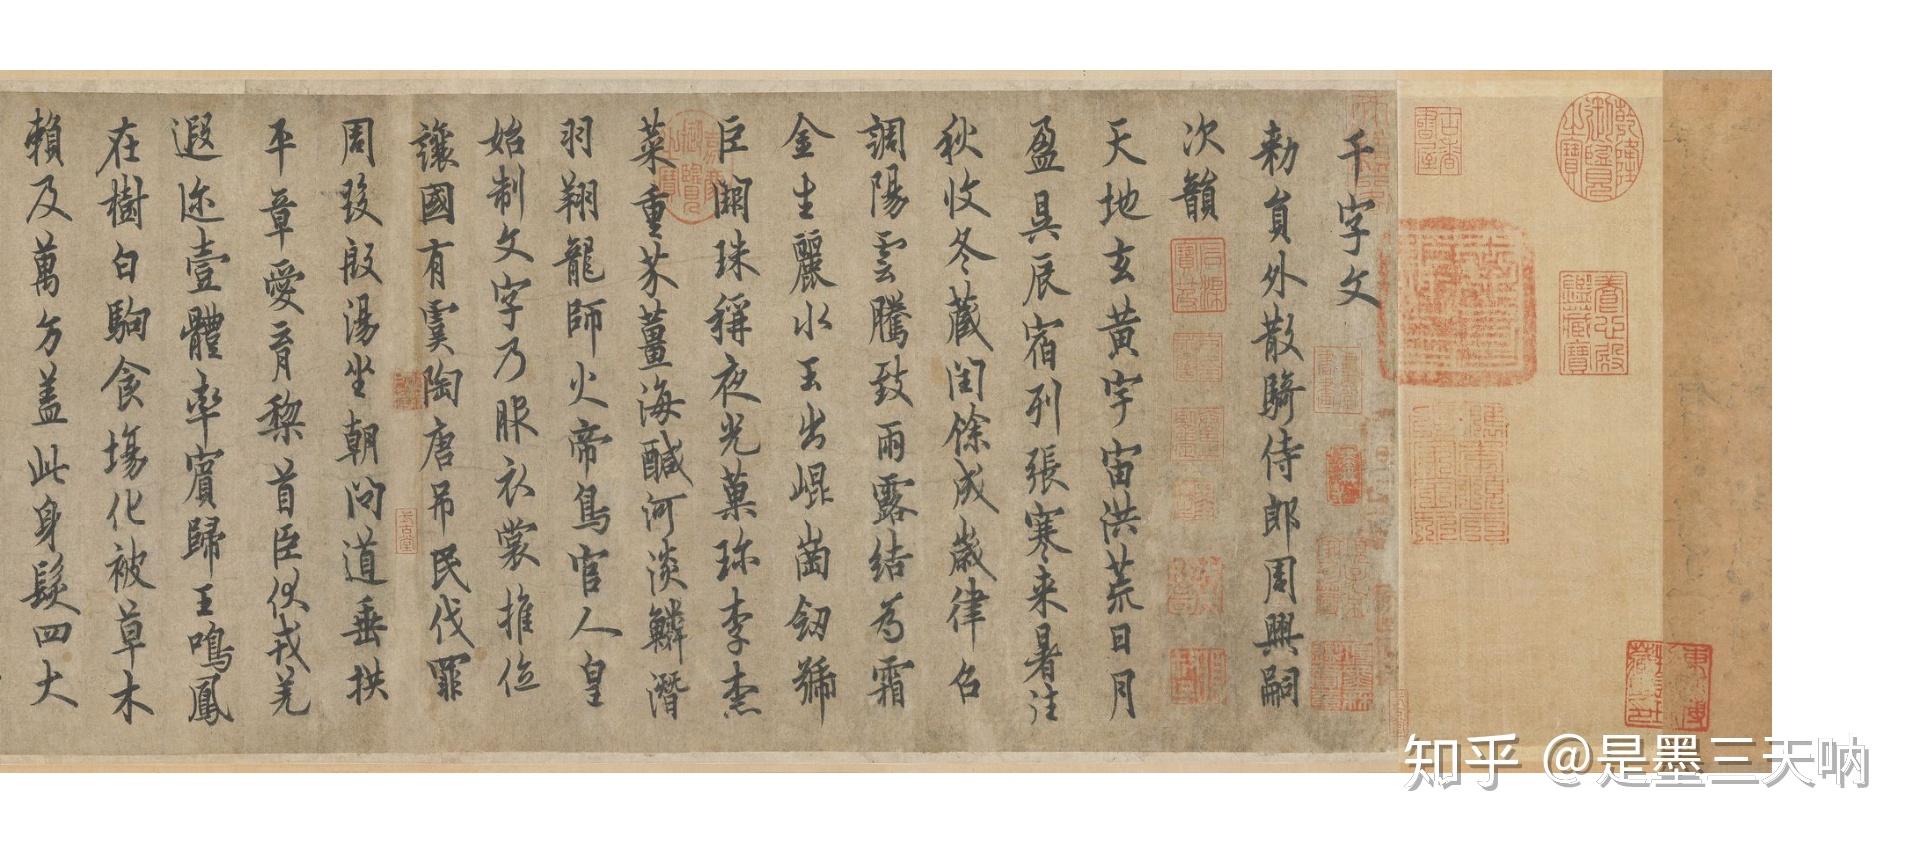 千字文
勅員外散騎侍郎周興嗣
次韻
天地玄黃宇宙洪荒日月
盈昃辰宿列張寒来暑往
秋收冬藏閏餘成歲律召
調陽雲騰致雨露結為霜
金生麗水玉出崐崗劒號
巨闕珠稱夜光菓珎李柰
菜重芥薑海醎河淡鱗潛
羽翔龍師火帝鳥官人皇
始制文字乃服衣裳推位
讓國有虞陶唐吊民伐罪
周發殷湯坐朝問道垂拱
平章愛育黎首臣伏戎羌
遐迩壹體率賓歸王鳴鳳
在樹白駒食場化被草木
賴及萬方蓋此身髮四大
乾隆御覽之寶
養心殿鑑藏寶
知乎 @是墨三天呐